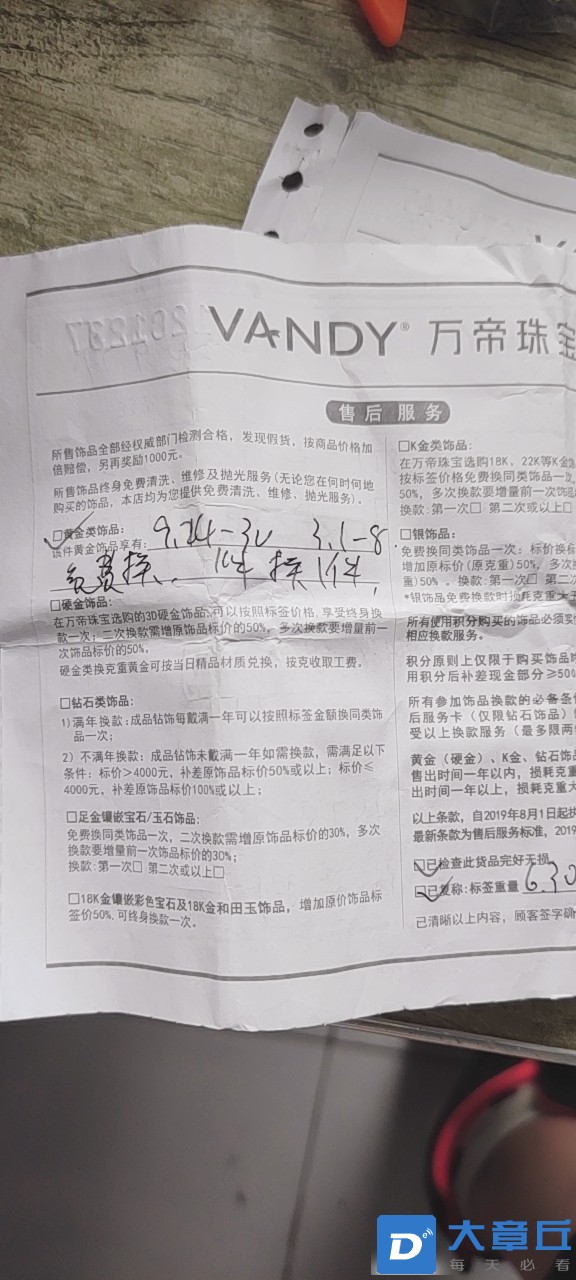 VANDY® 万帝珠宝
售后服务
所售饰品全部经权威部门检测合格，发现假货，按商品价格加
倍赔偿，另再奖励1000元。
所售饰品终身免费清洗、维修及抛光服务(无论您在何时何地
购买的饰品，本店均为您提供免费清洗、维修、抛光服务)。
□黄金类饰品：
该件黄金饰品享有：
3.1-8
免费换 1件换1件
□硬金饰品：
在万帝珠宝选购的3D硬金饰品，可以按照标签价格，享受终身换
款一次；二次换款需增原饰品标价的50%，多次换款要增量前一
次饰品标价的50%。
硬金类换克重黄金可按当日精品材质兑换，按克收取工费。
□钻石类饰品：
1)满年换款：成品钻饰每戴满一年可以按照标签金额换同类饰
品一次；
2）不满年换款：成品钻饰未戴满一年如需换款，需满足以下
条件：标价＞4000元，补差原饰品标价50%或以上；标价≤
4000元，补差原饰品标价100%或以上；
□足金镶嵌宝石/玉石饰品：
免费换同类饰品一次，二次换款需增原饰品标价的30%，多次
换款要增量前一次饰品标价的30%；
换款：第一次□ 第二次或以上□
□18K金镶嵌彩色宝石及18K金和田玉饰品，增加原价饰品标
签价50%，可终身换款一次。
□K金类饰品：
在万帝珠宝选购18K、22K等K金
按标签价格免费换同类饰品一次
50%，多次换款要增量前次饰品
换款：第一次□ 第二次或以上□
□银饰品：
免费换同类饰品一次：标价换
增加原标价(原克重)50%，多次
重)50%。换款：第一次□ 第二
*银饰品免费换款时损耗克重大于
所有使用积分购买的饰品必须
相应换款服务。
积分原则上仅限于购买饰品
用积分后补差现金部分≥50
所有参加饰品换款的必备条
后服务卡（仅限钻石饰品）
受以上换款服务（最多限两
黄金（硬金）、K金、钻石饰品
售出时间一年以内，损耗克重
出时间一年以上，损耗克重大
以上条款，自2019年8月1日起
最新条款为售后服务标准，2019
□已检查此货品完好无损
□已复称：标签重量 6.30
已清晰以上内容，顾客签字确
大章丘
每天必看